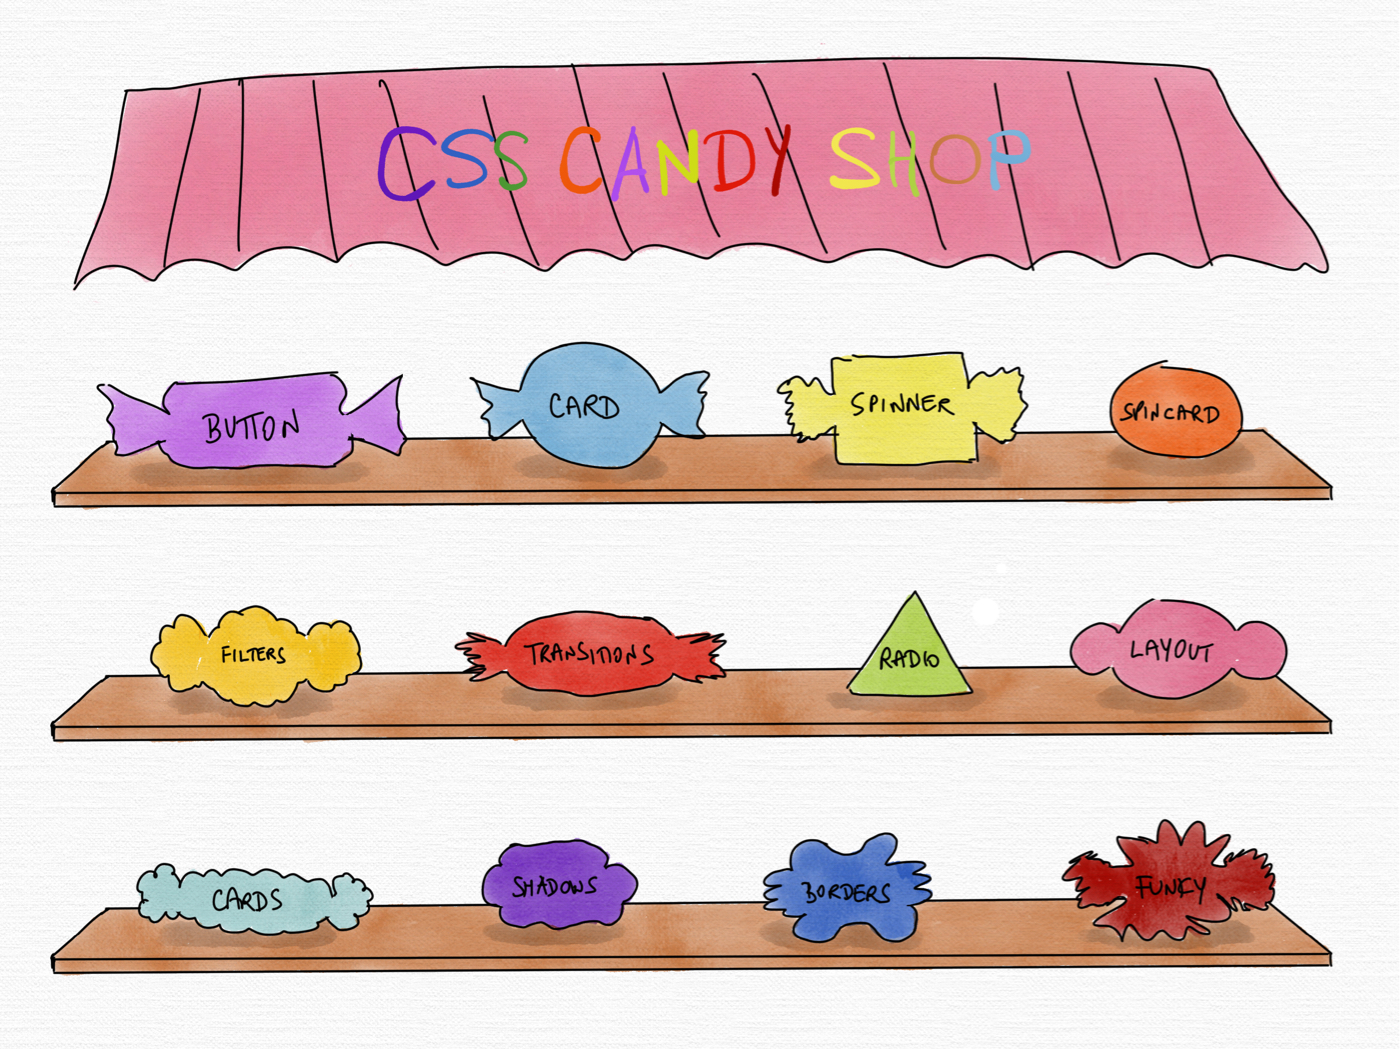 CSS CANDY SHOP
BUTTON
CARD
SPINNER
SPINCARD
FILTERS
TRANSITIONS
RADIO
LAYOUT
CARDS
SHADOWS
BORDERS
FUNKY